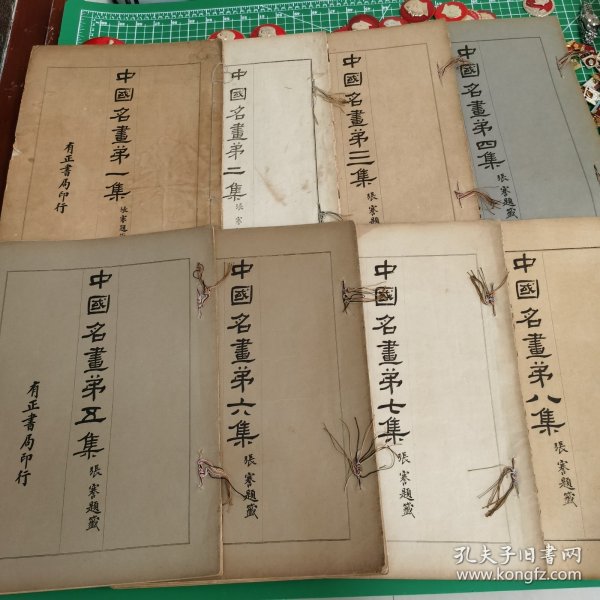 中國名畫第一集
張謇題籤
有正書局印行
中國名畫第二集
張
中國名畫第三集
張謇題籤
中國名畫第四集
張謇題籤
中國名畫第五集
張謇題籤
有正書局印行
中國名畫第六集
張謇題籤
中國名畫第七集
張謇題籤
中國名畫第八集
張謇題籤
孔夫子旧书网
www.kongfz.com